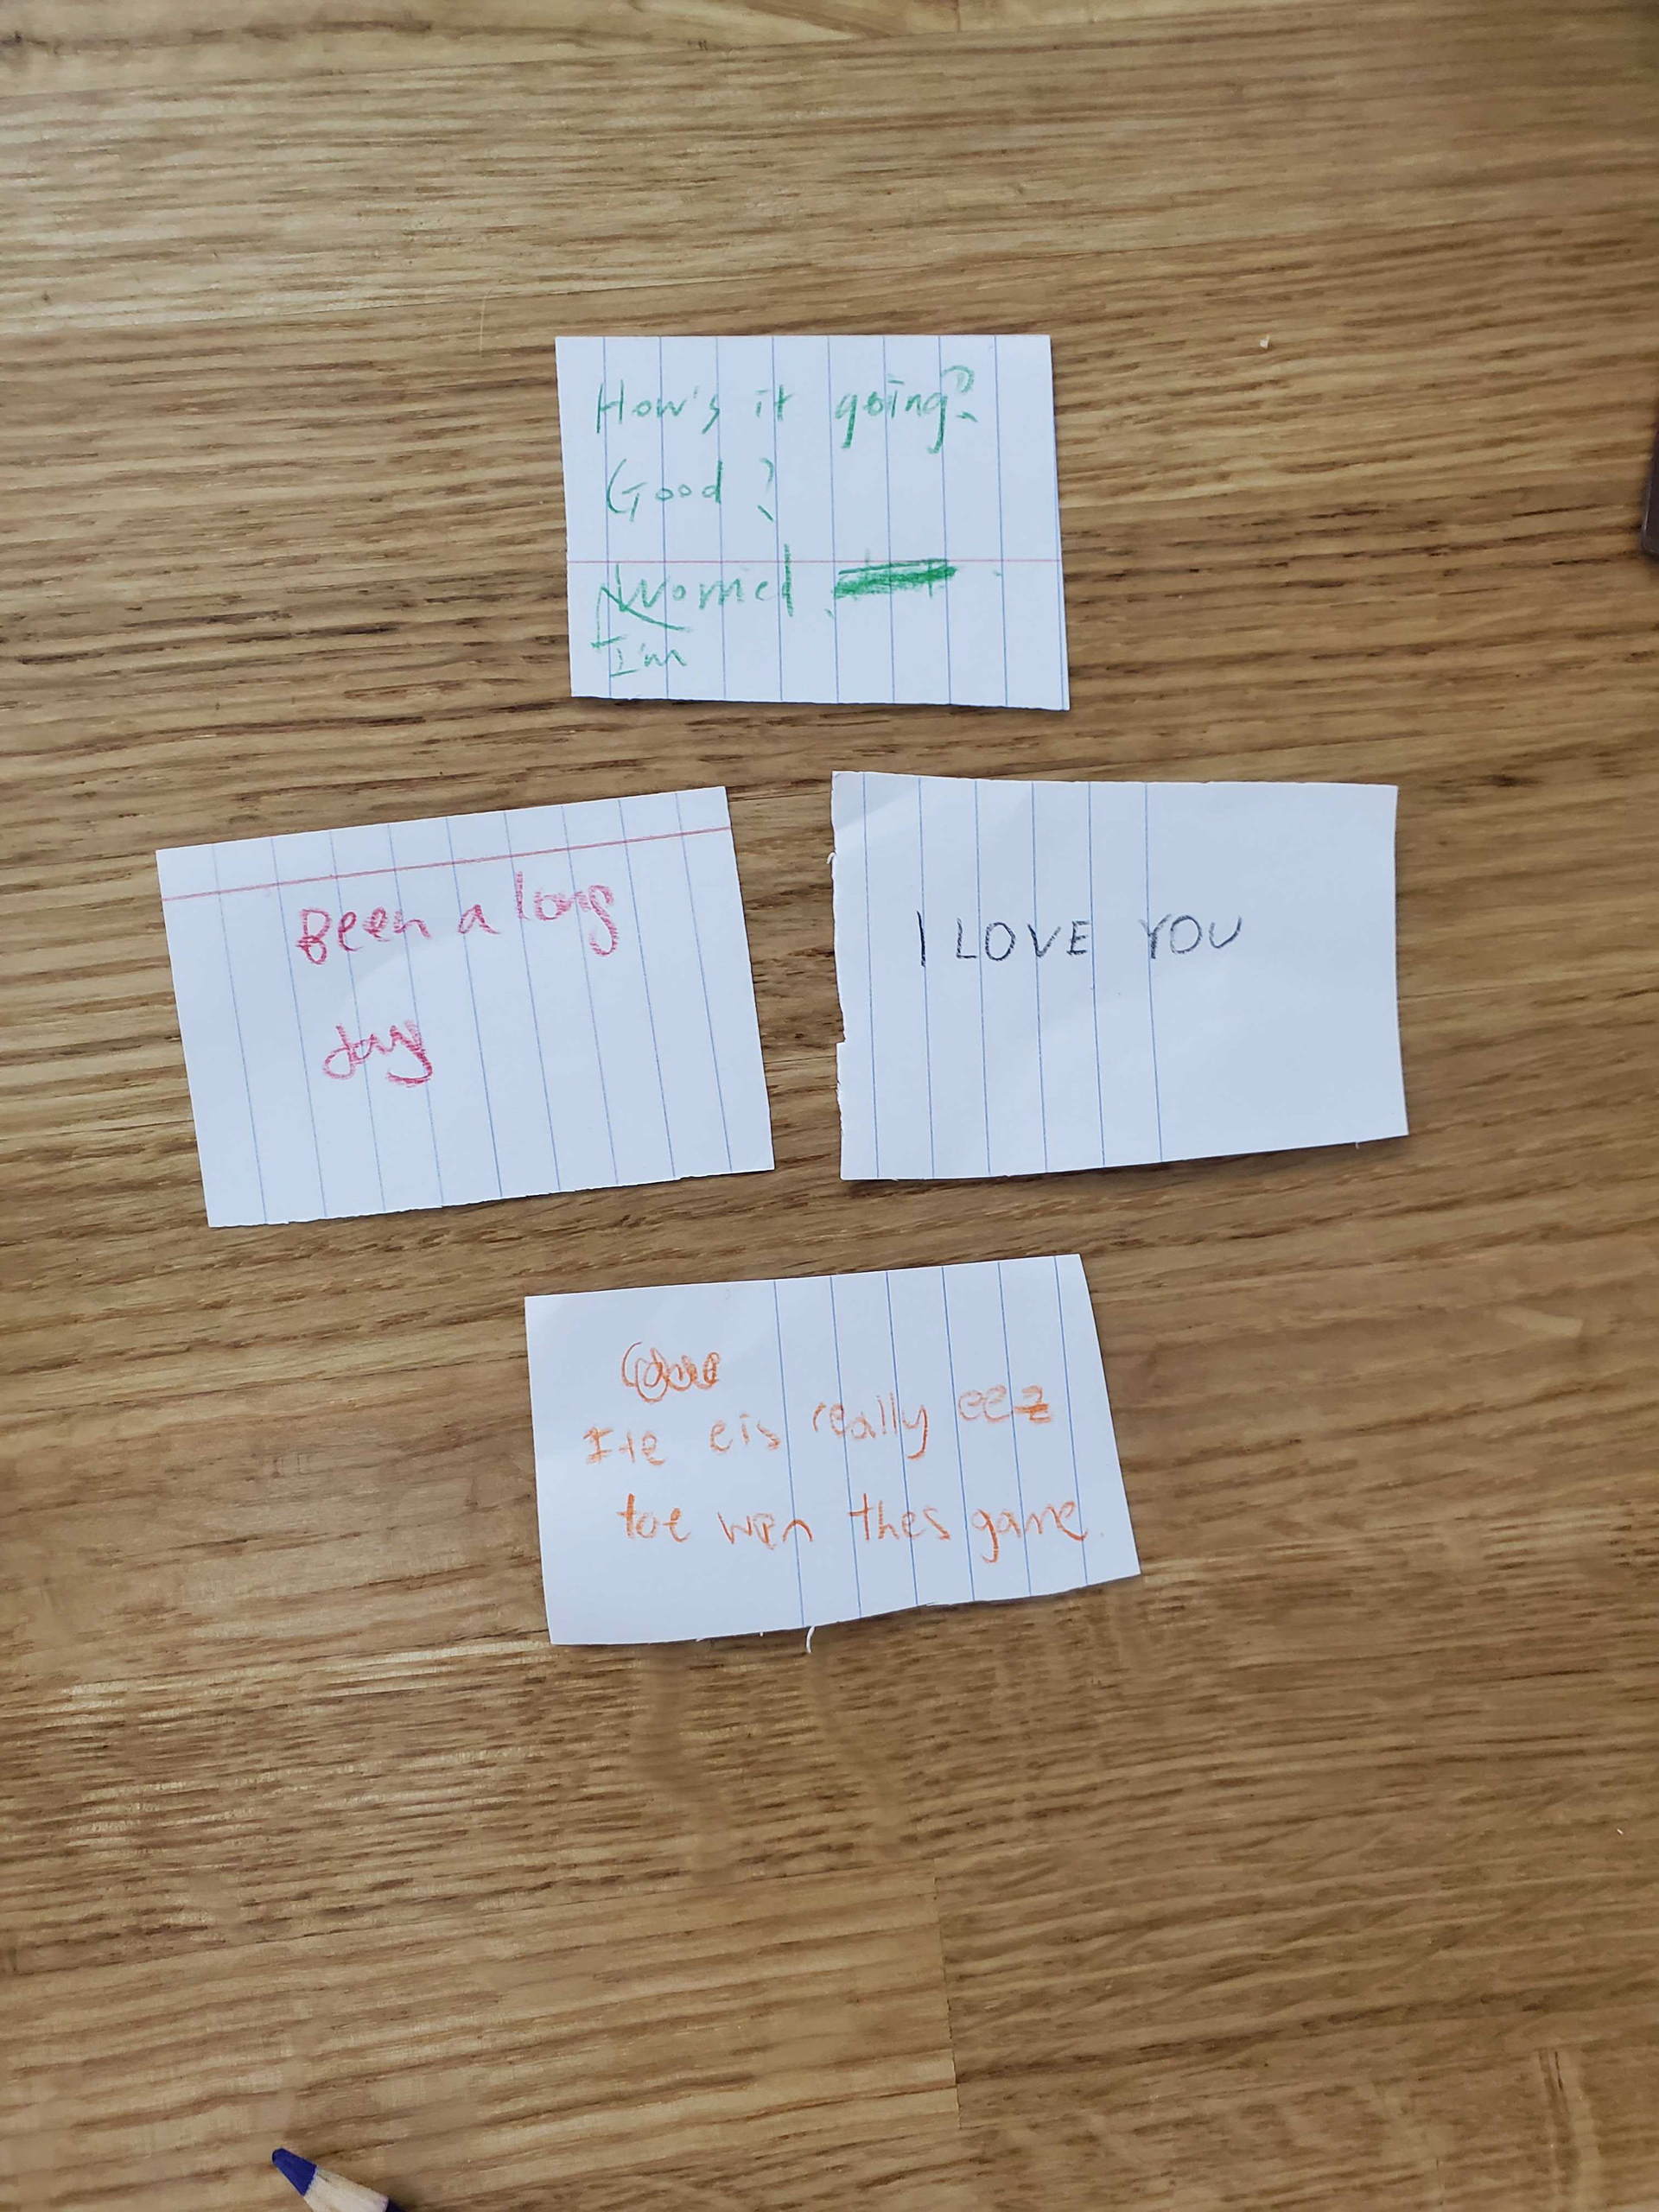 How's it going?
Good?
Worried
I'm
Been a long
day
I LOVE YOU
Ite eis really eez
toe wen thes game.